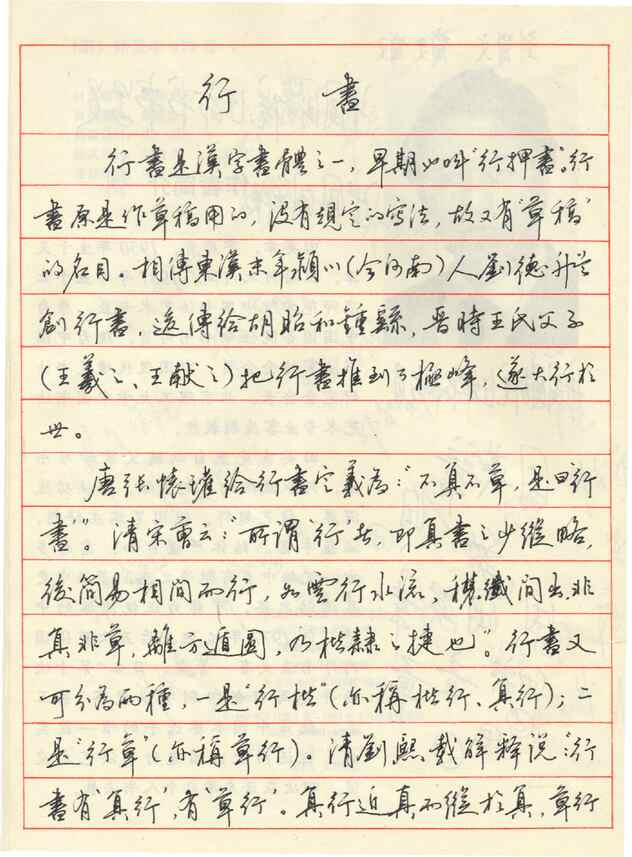 行書
行書是漢字書體之一，早期也叫“行押書”。行
書原是作草稿用的，没有規定的寫法，故又有“草稿”
的名目。相傳東漢末年潁川（今河南）人劉德升首
創行書，後傳給胡昭和鍾繇，晋時王氏父子
（王羲之、王献之）把行書推到了極峰，遂大行於
世。
唐張懷瓘給行書定義為：“不真不草，是曰‘行
書’”。清宋曹云：“所謂‘行’者，即真書之少縱略，
後簡易相間而行，如雲行水流，穠纖間出，非
真非草，離方遁圓，乃楷隸之捷也”。行書又
可分為两種，一是“行楷”（亦稱楷行、真行）；二
是“行草”（亦稱草行）。清劉熙載解釋説：“行
書有‘真行’，有‘草行’。真行近真而縱於真，草行